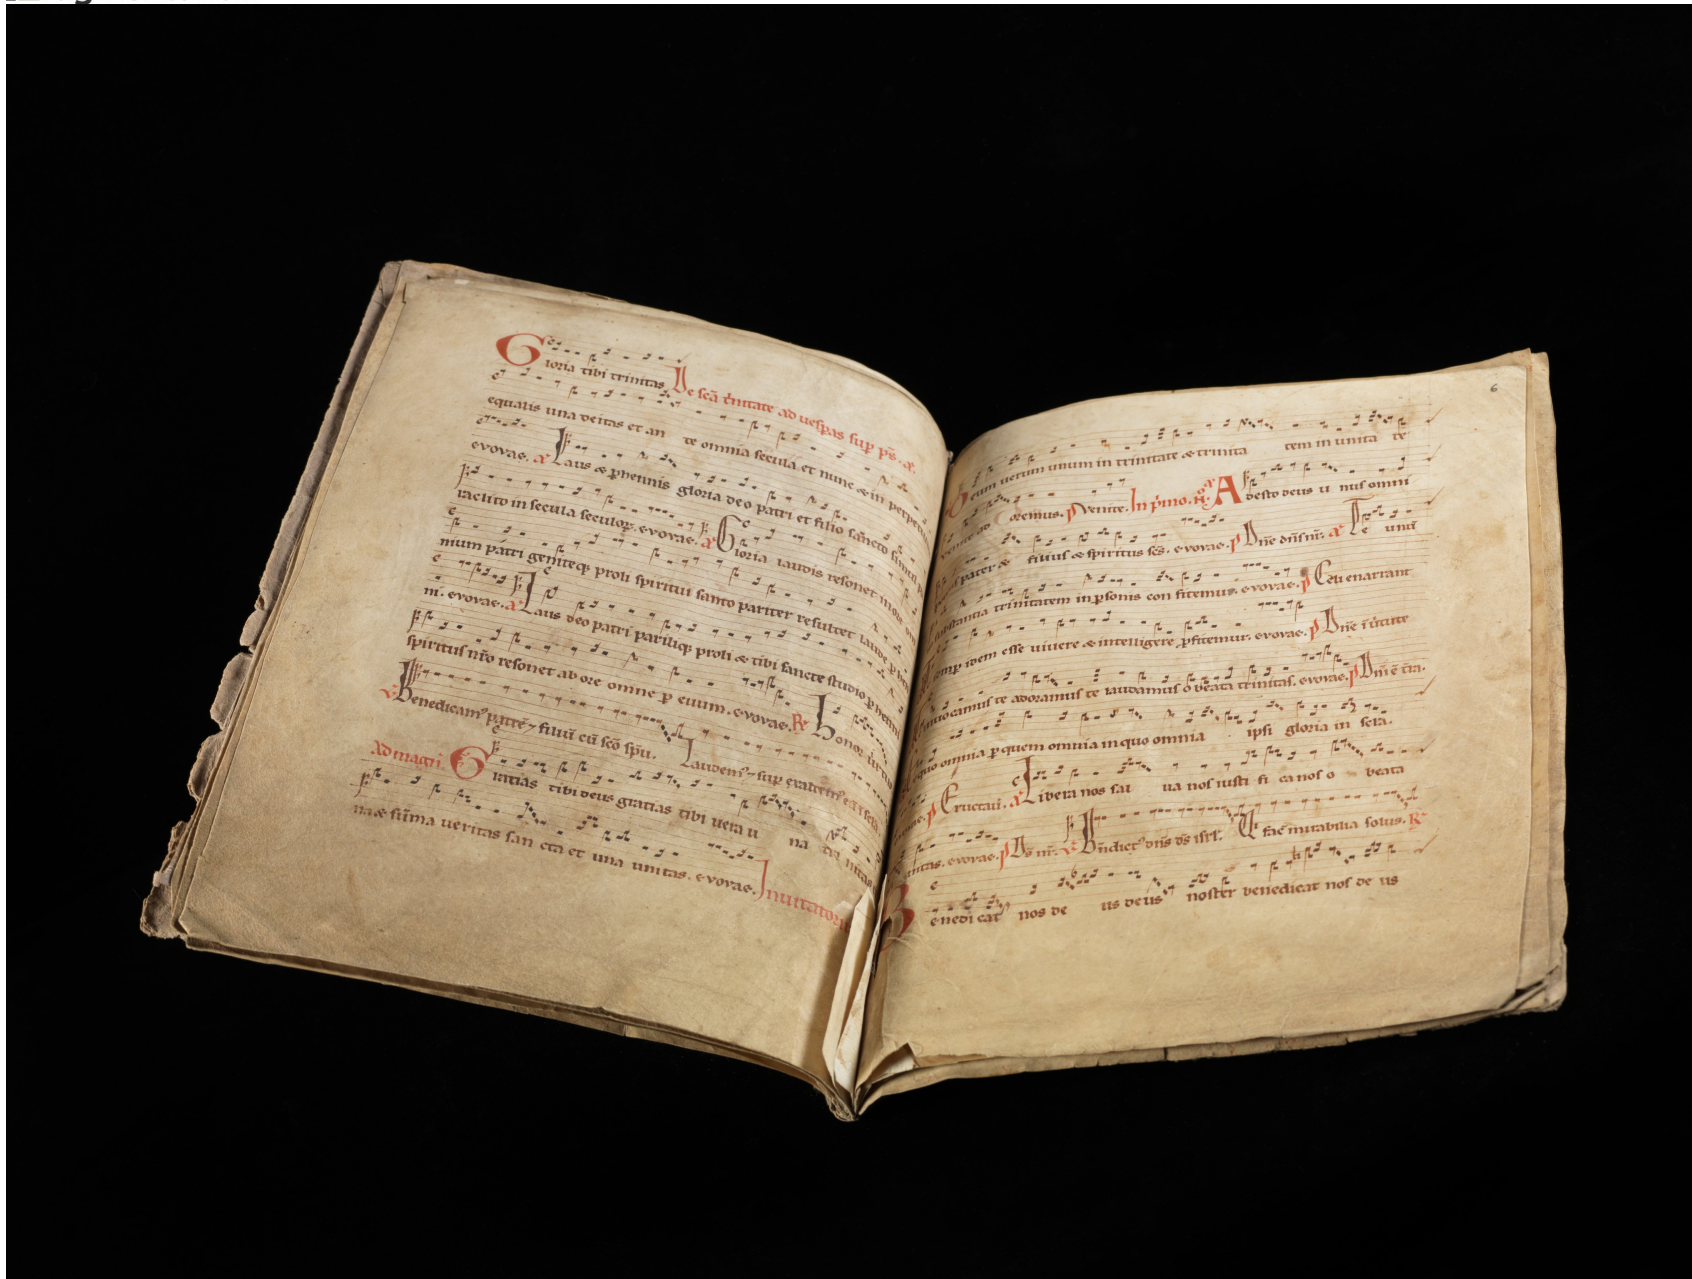 Gloria tibi trinitas De scā t̄nitate ad uesp̄as sup̄ ps̄. a͞.
equalis una deitas et an te omnia secula et nunc & in perpetuū
evovae. a͞ Laus & p̄hennis gloria deo patri et filio sancto simul
raclito in secula seculoꝝ. evovae. a͞ Gloria laudis resonet in ore om
nium patri geniteq; proli spiritui santo pariter resultet laude p̄hen
ni. evovae. a͞ Laus deo patri pariliq; proli & tibi sancte studio p̄henni
spiritus nr̄o resonet ab ore omne p̄ euum. evovae. ℟ honor uirtus
℣ Benedicam⁹ patrē ⁊ filiū cū scō sp̄u. Laudem⁹ ⁊ sup̄ exaltem⁹ eū ī scl̄a.
Ad magn̄. Gratias tibi deus gratias tibi uera u na tri nitas
na & sūma ueritas san cta et una unitas. evovae. Inuitatoriū
6
Deum uerum unum in trinitate & trinita tem in unita te
venite ad oremus. p̄ venite. In p̄imo. n̄. a͞ Adesto deus u nus omni
pater & filius & spiritus sc̄s. evovae. p̄ Dn̄e dn̄s nr̄. a͞ Te unū
substantia trinitatem in p̄sonis con fitemur. evovae. p̄ Celi enarrant
semp̄ idem esse uiuere & intelligere p̄fitemur. evovae. p̄ Dn̄e ī uirtute
inuocamus te adoramus te laudamus o beata trinitas. evovae. p̄ Dn̄i ē t̄ra.
equo omnia p̄ quem omnia in quo omnia ipsi gloria in scl̄a.
p̄ Eructauı̄. a͞ Libera nos sal ua nos iusti fi ca nos o beata
trinitas. evovae. p̄ Ds̄ nr̄. ℣ Bn̄dict⁹ dn̄s ds̄ isrl̄. Qi facı̄t mirabilia solus. ℟
Benedicat nos de us deus noster benedicat nos de us